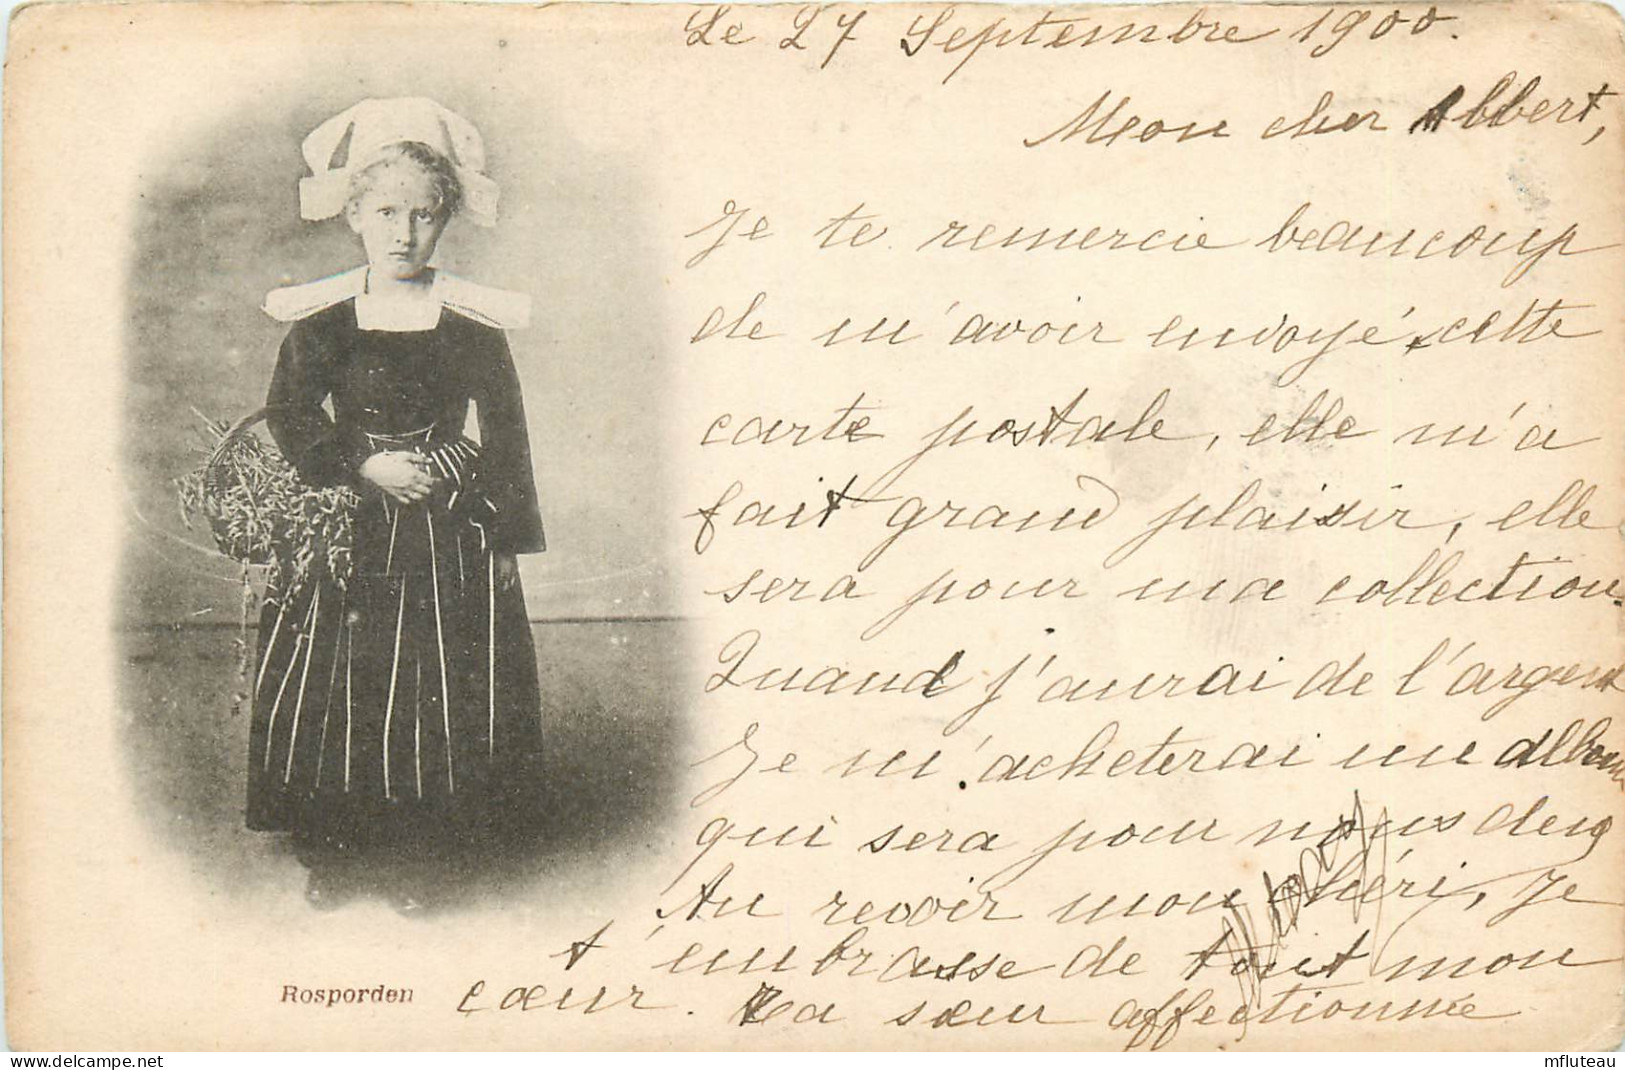 Le 27 Septembre 1900.
Mon cher Albert,
Je te remercie beaucoup
de m'avoir envoyé cette
carte postale, elle m'a
fait grand plaisir, elle
sera pour ma collection.
Quand j'aurai de l'argent
Je m'acheterai un album
qui sera pour nous deux
Au revoir mon chéri, Je
t'embrasse de tout mon
cœur. Ta sœur affectionnée
Rosporden
www.delcampe.net
mfluteau